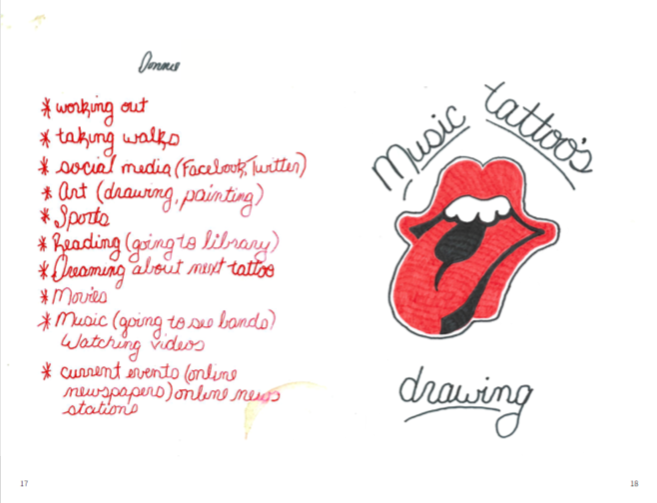 Donnie
* working out
* taking walks
* social media (Facebook, Twitter)
* Art (drawing, painting)
* Sports
* Reading (going to library)
* Dreaming about next tattoo
* Movies
* Music (going to see bands)
Watching videos
* current events (online
newspapers) online news
stations
17
Music tattoo's
drawing
18